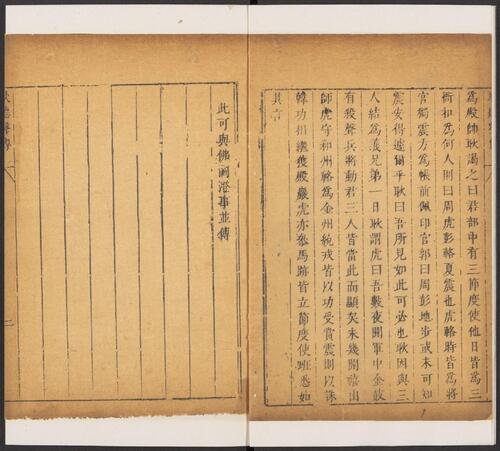 為殿帥耿謁之曰君部中有三節度使他日皆為三
衙扣為何人則曰周虎彭輅夏震也虎輅時皆為將
官獨震方為帳前佩印官郭曰周彭地步或未可知
震安得遽爾乎耿曰吾所見如此可必也耿因與三
人結為義兄第一日耿謂虎曰吾數夜聞軍中金鼓
有殺聲兵將動君三人皆當此而顯矣未幾開禧出
師虎守和州輅為金州統戎皆以功受賞震則以誅
韓功相繼獲殿巖虎亦躐馬跡皆立節度使班悉如
其言
此可與佛圖澄事並傳